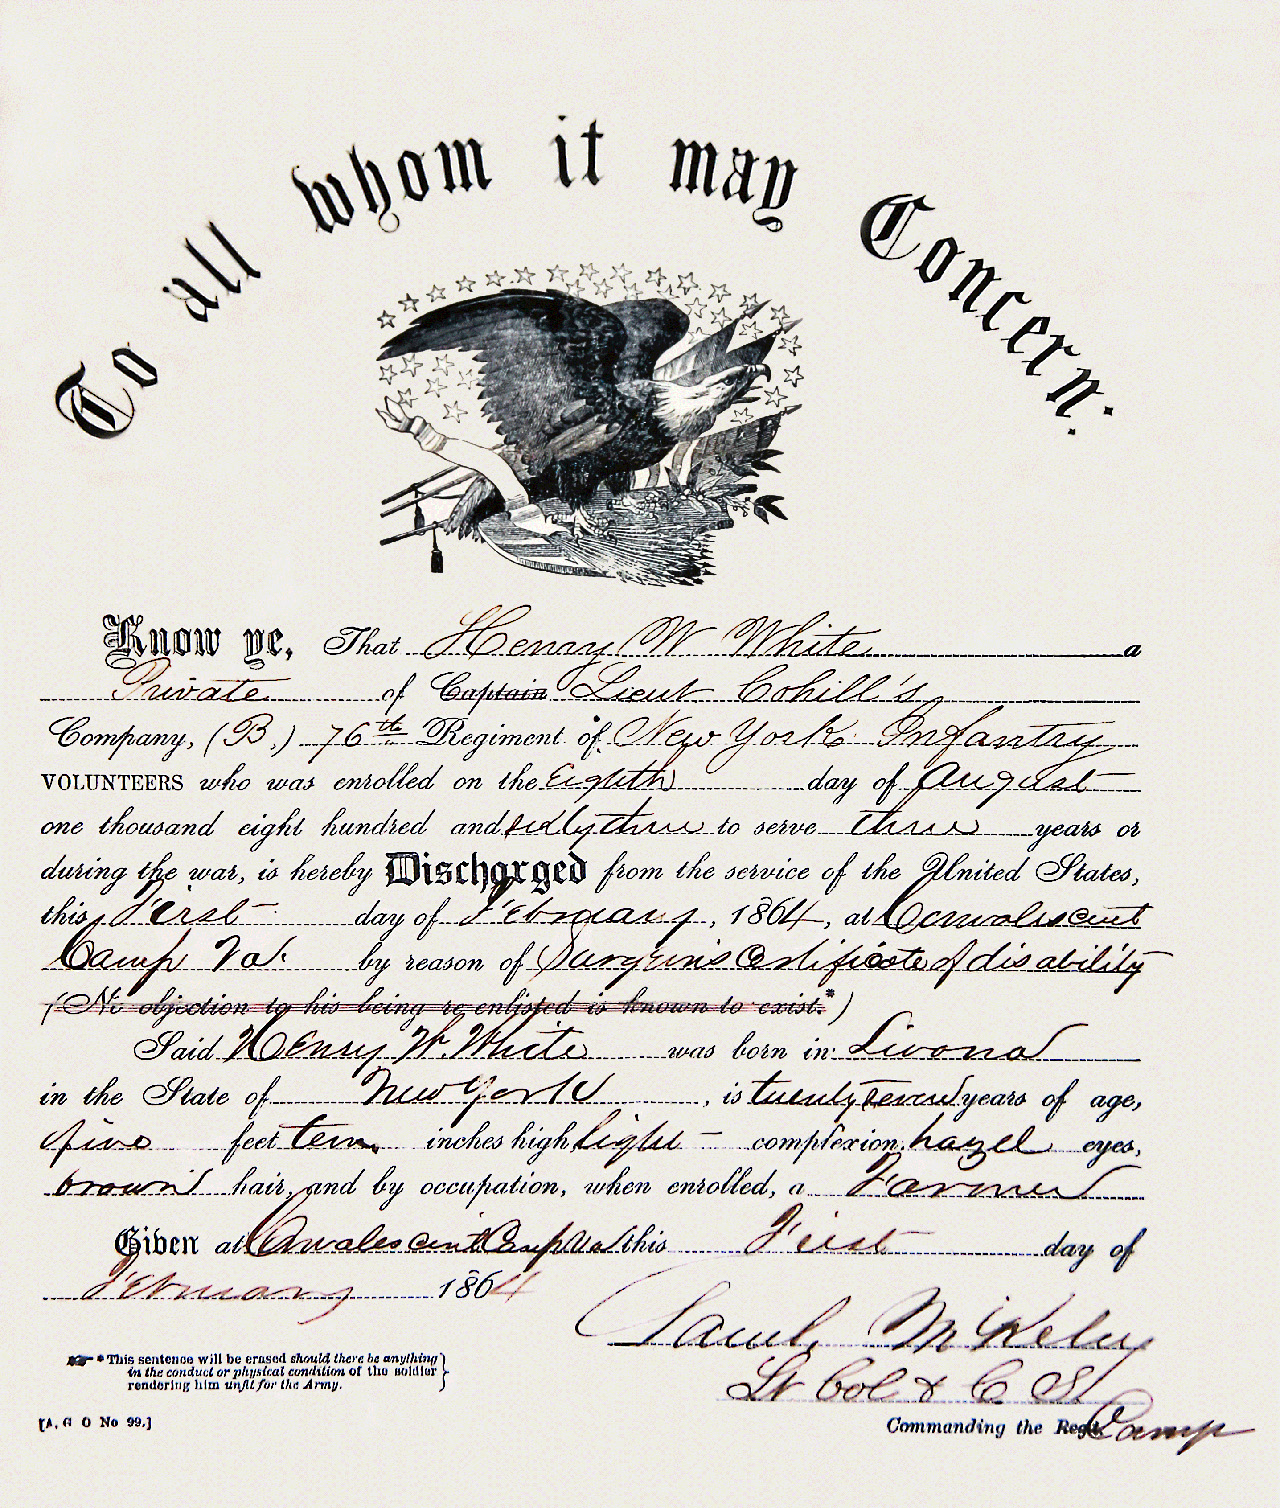 To all whom it may Concern:
Know ye, That Henry W White a
Private of Captain Lieut Cohill's
Company, (B.) 76th Regiment of New York Infantry
VOLUNTEERS who was enrolled on the Eighth day of August
one thousand eight hundred and sixty three to serve three years or
during the war, is hereby Discharged from the service of the United States,
this First day of February, 1864, at Convalescent
Camp Va. by reason of Surgeon's Certificate of disability
(No objection to his being re enlisted is known to exist.*)
Said Henry W. White was born in Livona
in the State of New York, is twenty seven years of age,
five feet ten inches high, light complexion, hazel eyes,
brown hair, and by occupation, when enrolled, a Farmer
Given at Convalescent Camp Va this First day of
February 1864
Saml McKelvy
Lt Col & C S
* This sentence will be erased should there be anything
in the conduct or physical condition of the soldier
rendering him unfit for the Army.
[A. G O No 99.]
Commanding the Regt. Camp